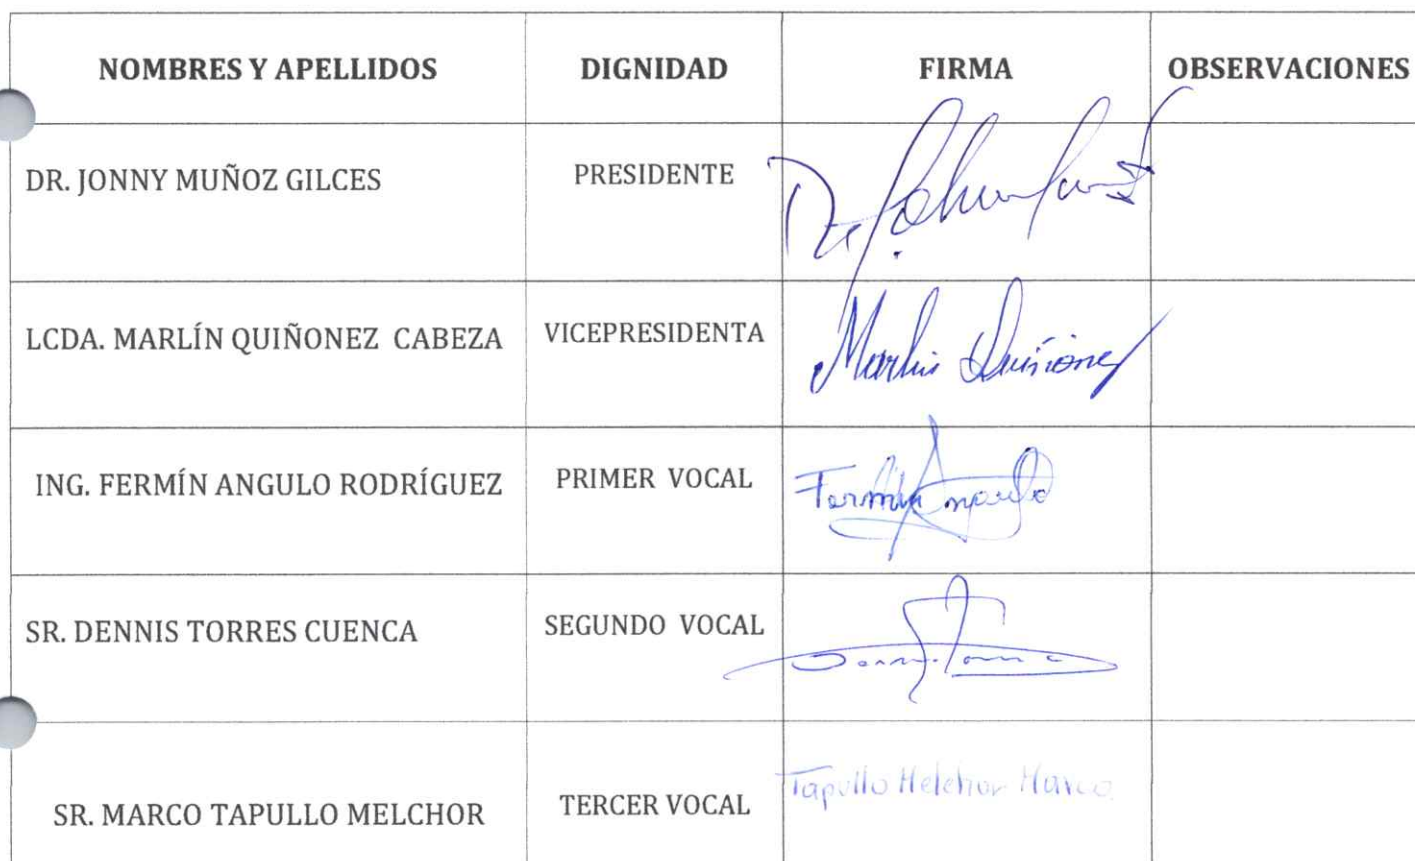 NOMBRES Y APELLIDOS DIGNIDAD FIRMA OBSERVACIONES
DR. JONNY MUÑOZ GILCES PRESIDENTE
LCDA. MARLÍN QUIÑONEZ CABEZA VICEPRESIDENTA Marlin Quiñonez
ING. FERMÍN ANGULO RODRÍGUEZ PRIMER VOCAL Fermín Angulo
SR. DENNIS TORRES CUENCA SEGUNDO VOCAL
SR. MARCO TAPULLO MELCHOR TERCER VOCAL Tapullo Melchor Marco